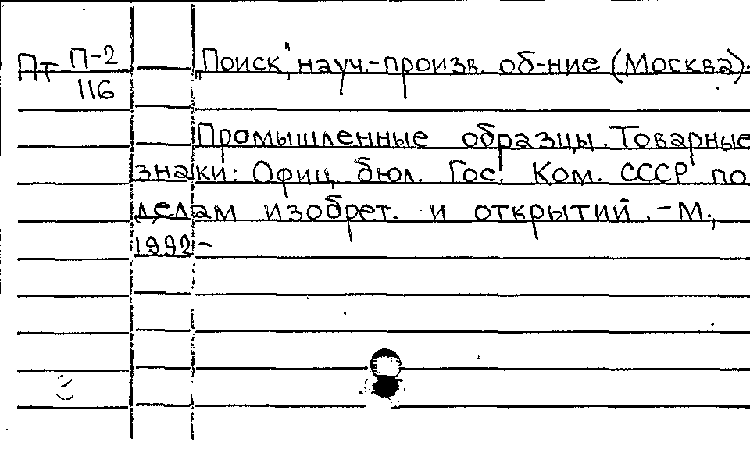 Пт П-2 „Поиск", науч.-произв. об-ние (Москва).
116
Промышленные образцы. Товарные
знаки: Офиц. бюл. Гос. Ком. СССР по
делам изобрет. и открытий. -М.,
1992-